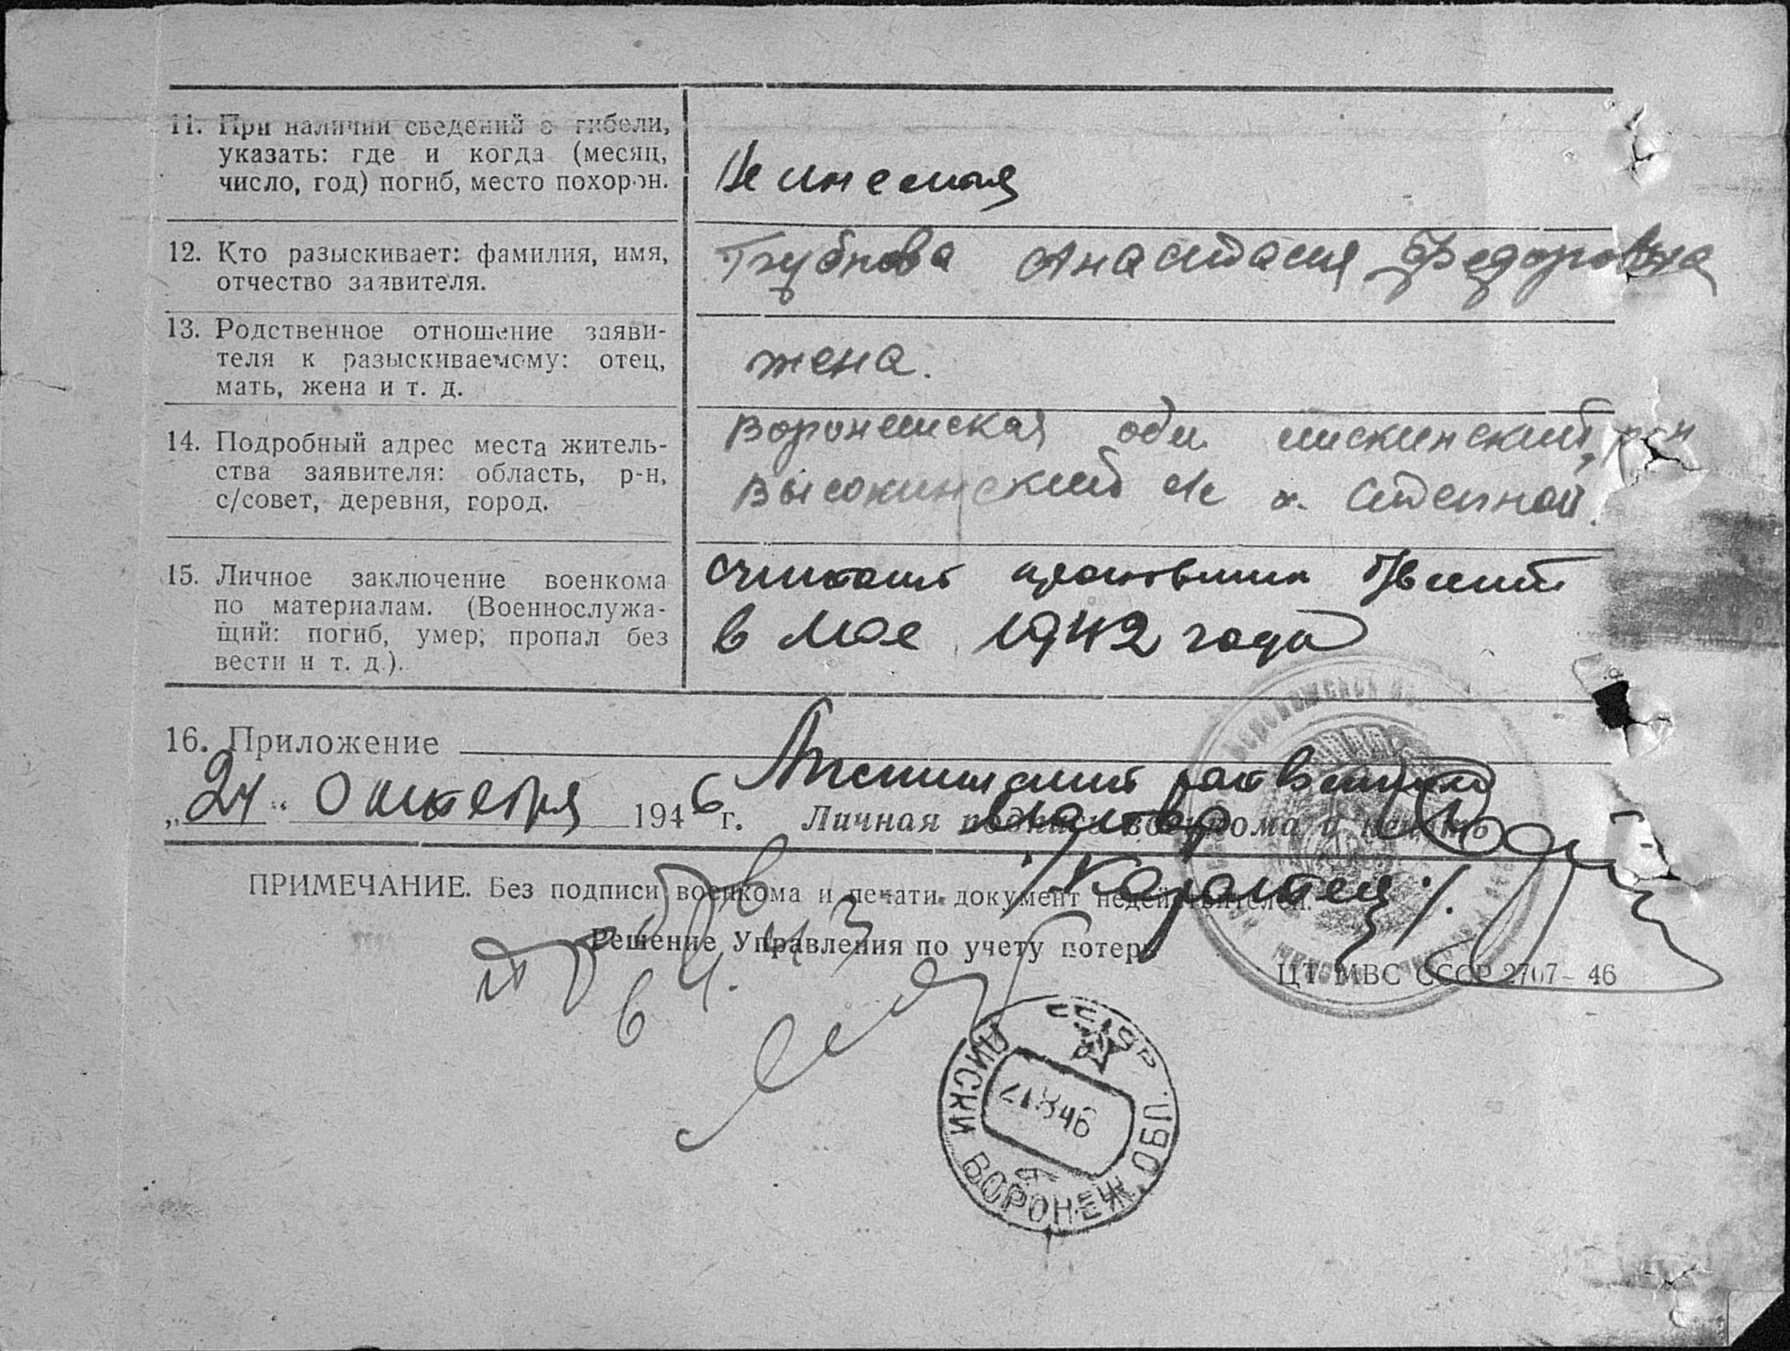 11. При наличии сведений о гибели,
указать: где и когда (месяц,
число, год) погиб, место похорон.
Не имеется
12. Кто разыскивает: фамилия, имя,
отчество заявителя.
Анастасия Федоровна
13. Родственное отношение заяви-
теля к разыскиваемому: отец,
мать, жена и т. д.
жена.
14. Подробный адрес места житель-
ства заявителя: область, р-н,
с/совет, деревня, город.
Воронежская обл. Лискинский р-н
Высокинский с/с х. Степной.
15. Личное заключение военкома
по материалам. (Военнослужа-
щий: погиб, умер, пропал без
вести и т. д.).
Считать пропавшим
в мае 1942 года
16. Приложение
„24“ Октября 1946 г. Личная подпись военкома и печать
ПРИМЕЧАНИЕ. Без подписи военкома и печати документ недействителен.
Решение Управления по учету потерь
ЦТ МВС СССР 2707–46
СССР
ЛИСКИ ВОРОНЕЖ. ОБЛ.